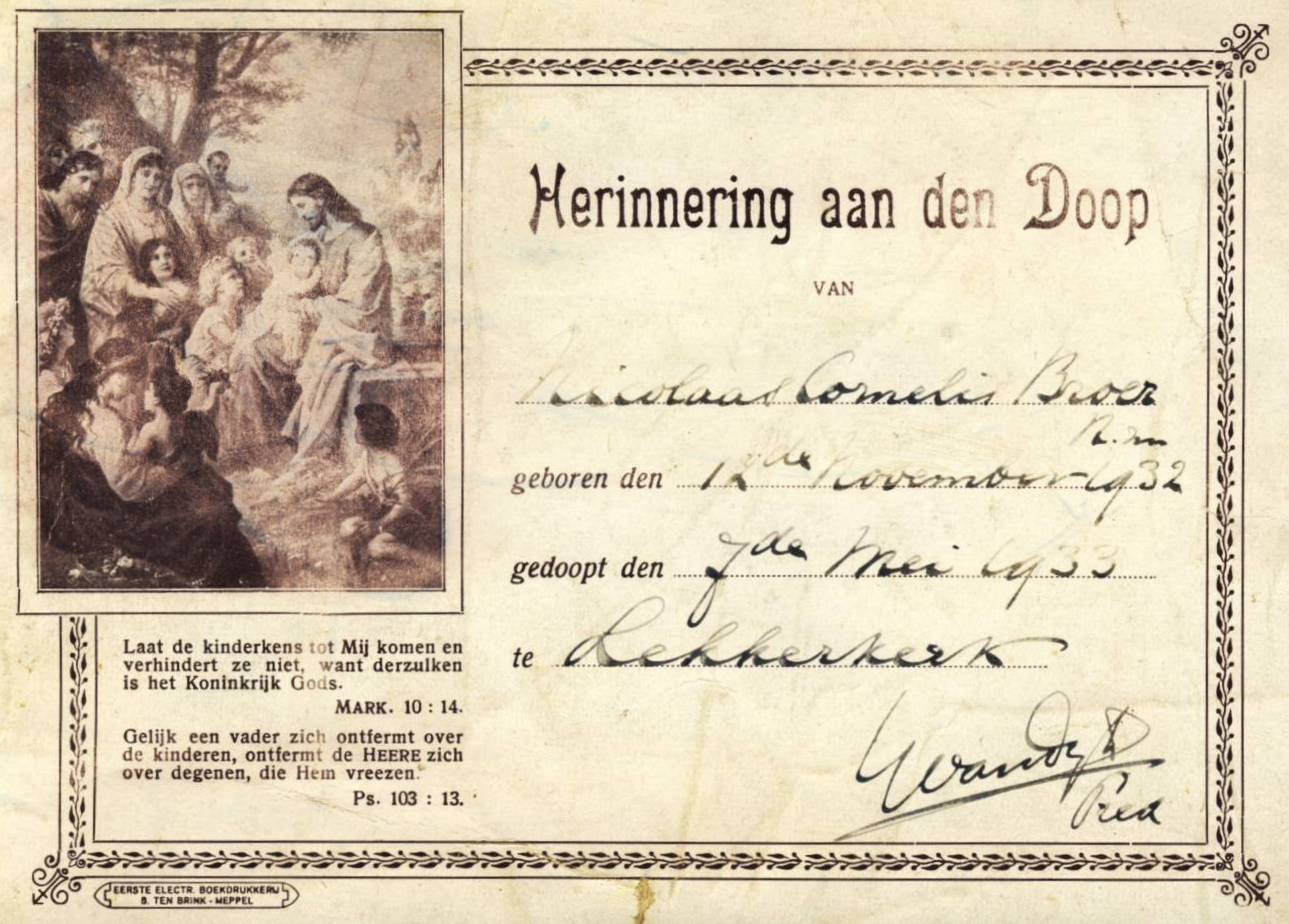 Herinnering aan den Doop
VAN
Nicolaas Cornelis Broer
geboren den 12de November 1932
n.m
gedoopt den 7de Mei 1933
te Lekkerkerk
Pred
Laat de kinderkens tot Mij komen en
verhindert ze niet, want derzulken
is het Koninkrijk Gods.
MARK. 10 : 14.
Gelijk een vader zich ontfermt over
de kinderen, ontfermt de HEERE zich
over degenen, die Hem vreezen.
Ps. 103 : 13.
EERSTE ELECTR. BOEKDRUKKERIJ
B. TEN BRINK - MEPPEL